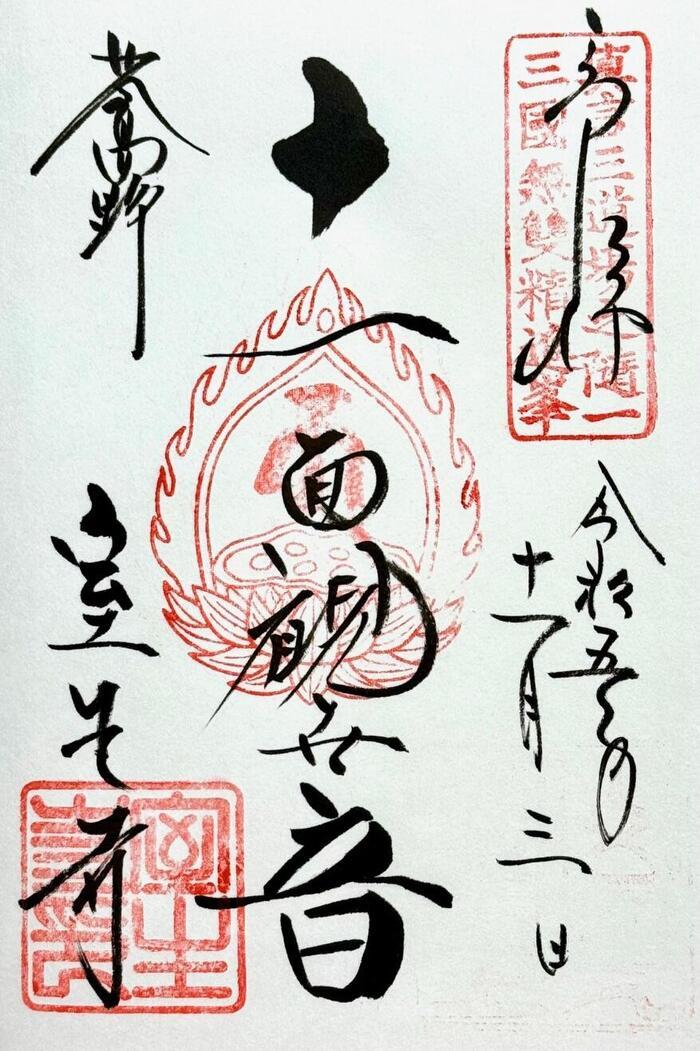 奉拝
真言三道場之隨一
三國無雙精進峯
令和五年
十一月三日
十一面観世音
女人高野
室生寺